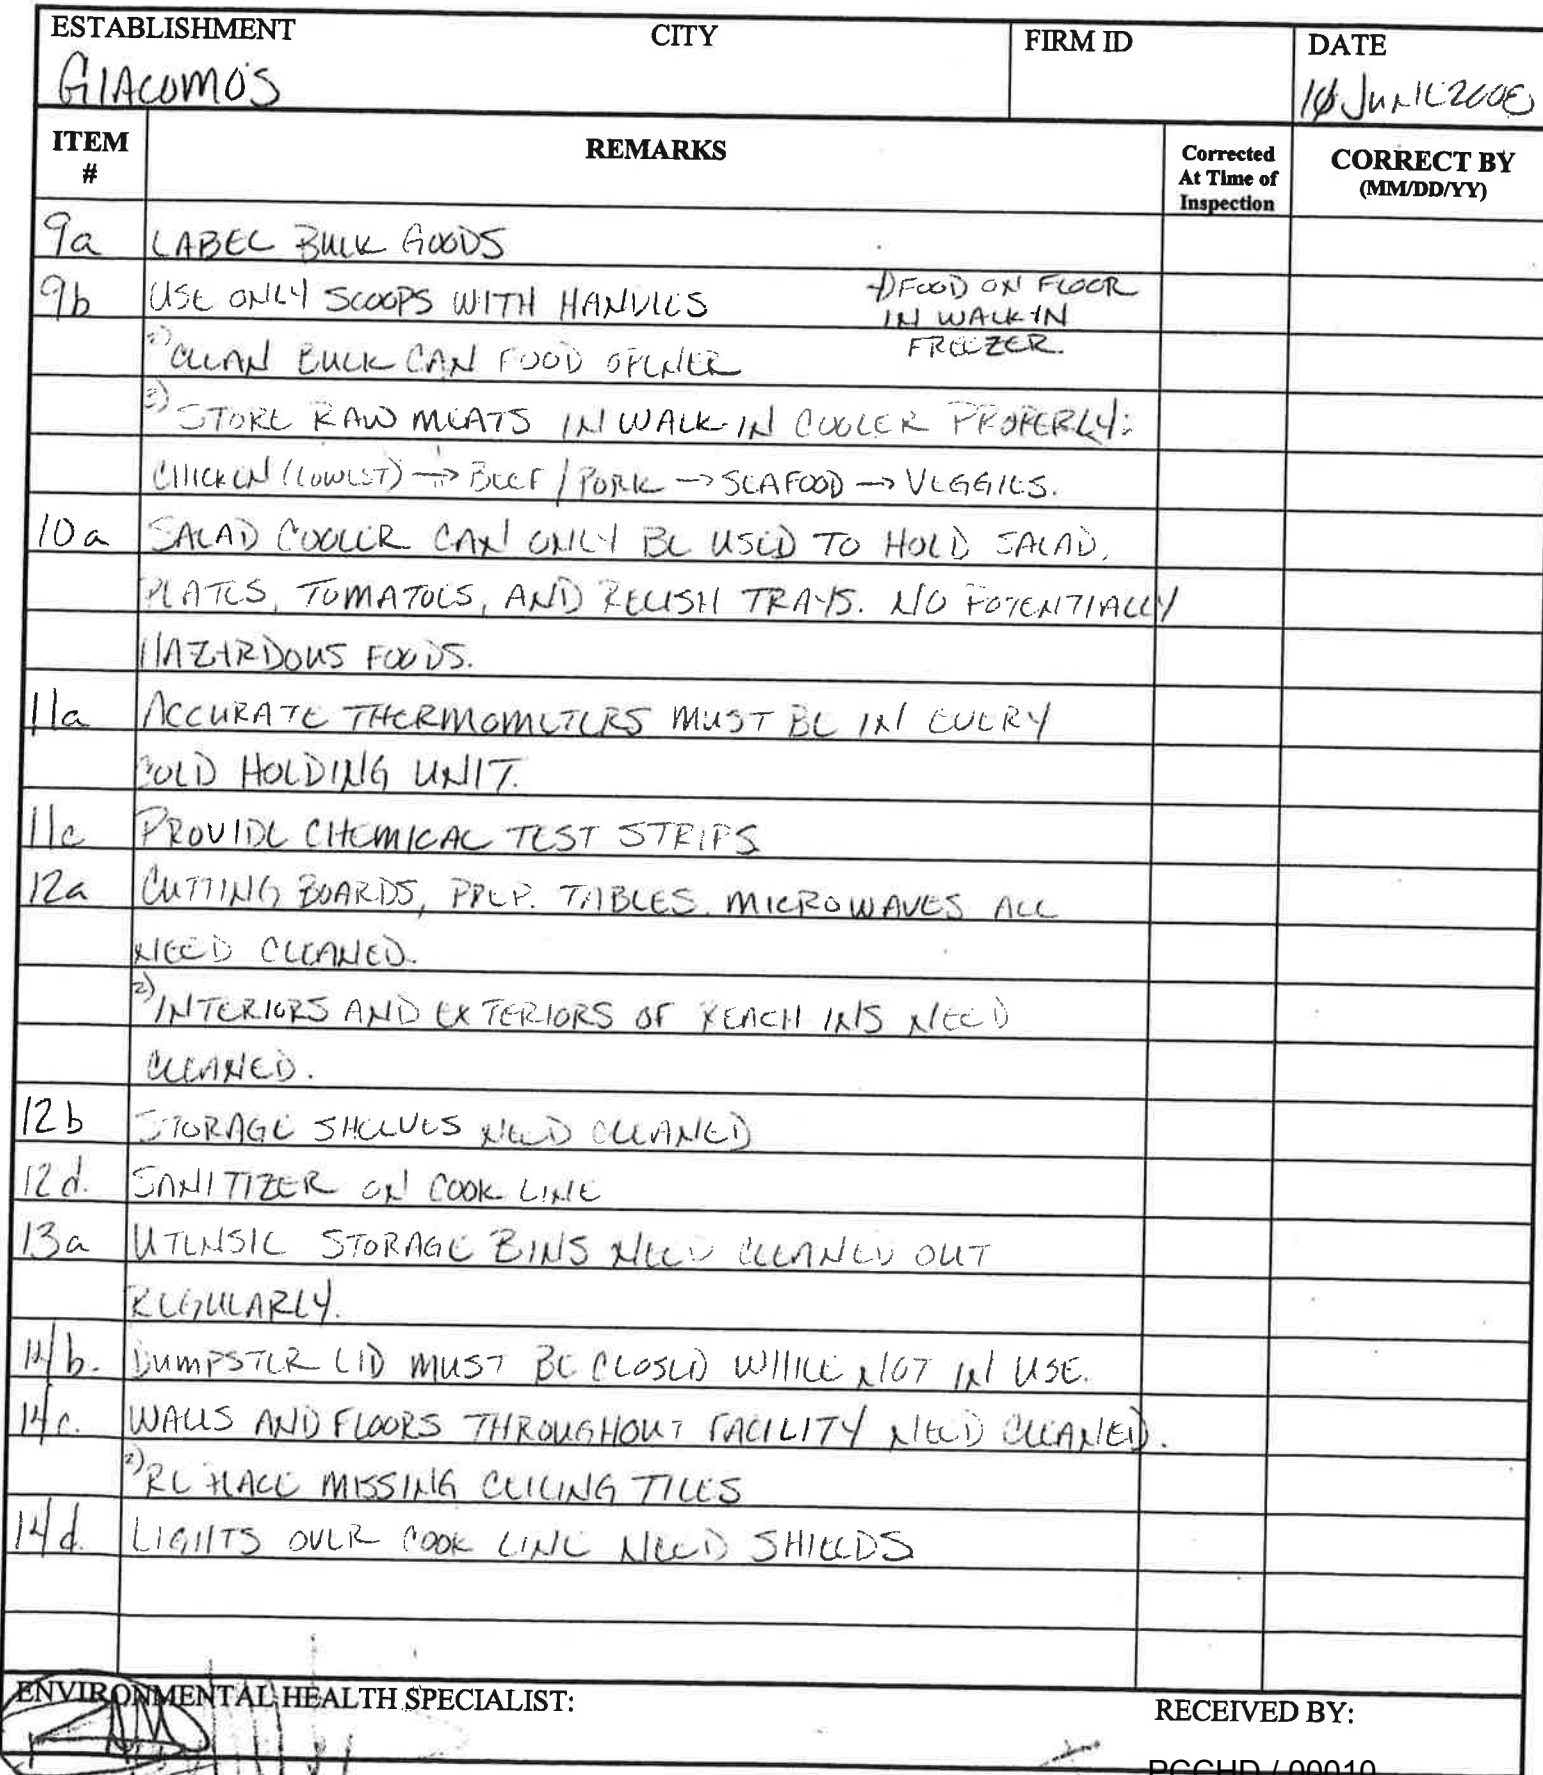 ESTABLISHMENT CITY FIRM ID DATE
GIACOMO'S 10 JUNE 2008
ITEM # REMARKS Corrected At Time of Inspection CORRECT BY (MM/DD/YY)
9a LABEL BULK GOODS
9b USE ONLY SCOOPS WITH HANDLES
4) FOOD ON FLOOR
IN WALK-IN
FREEZER.
2) CLEAN BULK CAN FOOD OPENER
3) STORE RAW MEATS IN WALK-IN COOLER PROPERLY:
CHICKEN (LOWEST) → BEEF / PORK → SEAFOOD → VEGGIES.
10a SALAD COOLER CAN ONLY BE USED TO HOLD SALAD,
PLATES, TOMATOES, AND RELISH TRAYS. NO POTENTIALLY
HAZARDOUS FOODS.
11a ACCURATE THERMOMETERS MUST BE IN EVERY
COLD HOLDING UNIT.
11c PROVIDE CHEMICAL TEST STRIPS
12a CUTTING BOARDS, PREP. TABLES, MICROWAVES ALL
NEED CLEANED.
2) INTERIORS AND EXTERIORS OF REACH INS NEED
CLEANED.
12b STORAGE SHELVES NEED CLEANED
12d. SANITIZER ON COOK LINE
13a UTENSIL STORAGE BINS NEED CLEANED OUT
REGULARLY.
14b. DUMPSTER LID MUST BE CLOSED WHILE NOT IN USE.
14c. WALLS AND FLOORS THROUGHOUT FACILITY NEED CLEANED.
2) REPLACE MISSING CEILING TILES
14d. LIGHTS OVER COOK LINE NEED SHIELDS
ENVIRONMENTAL HEALTH SPECIALIST: RECEIVED BY:
PCCHD / 00010